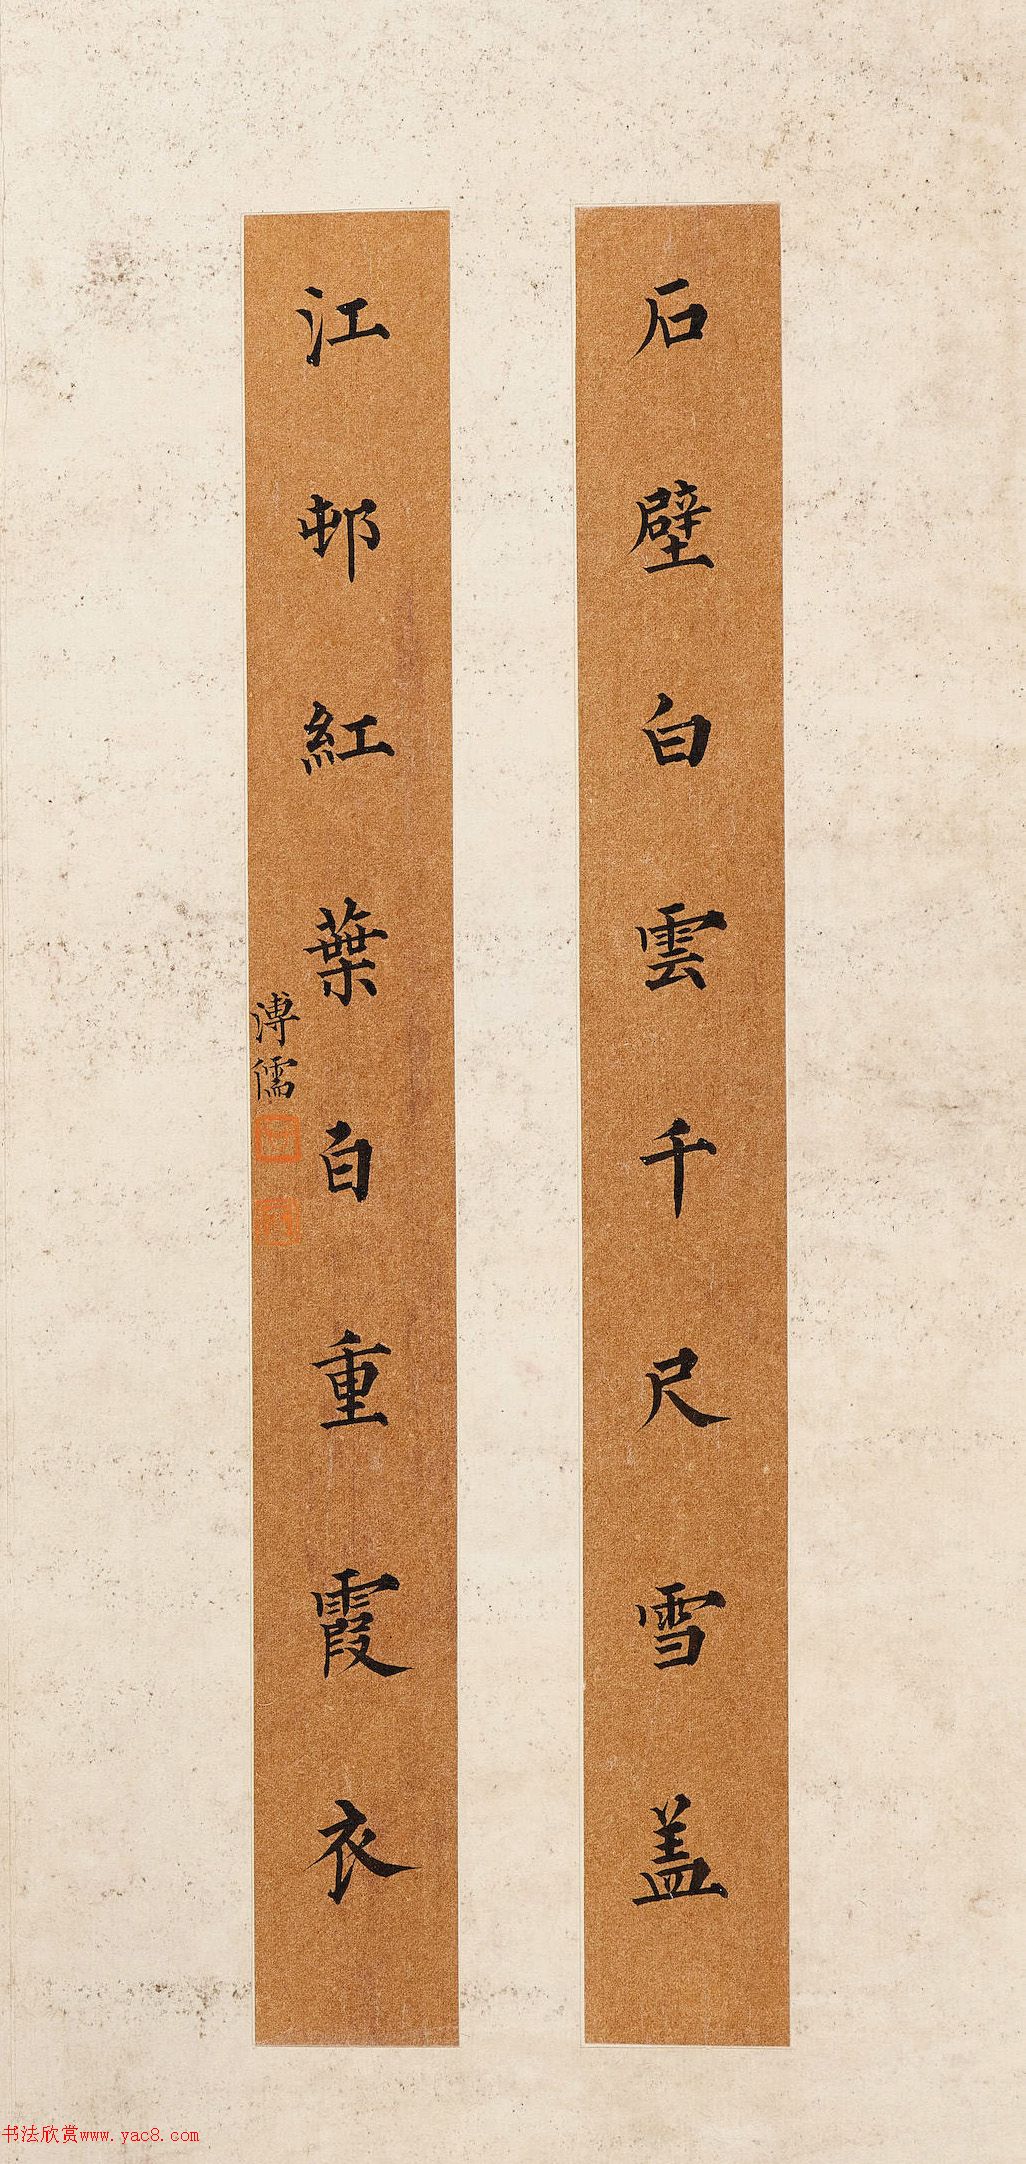 石壁白雲千尺雪盖
江邨紅葉百重霞衣
溥儒
书法欣赏www.yac8.com